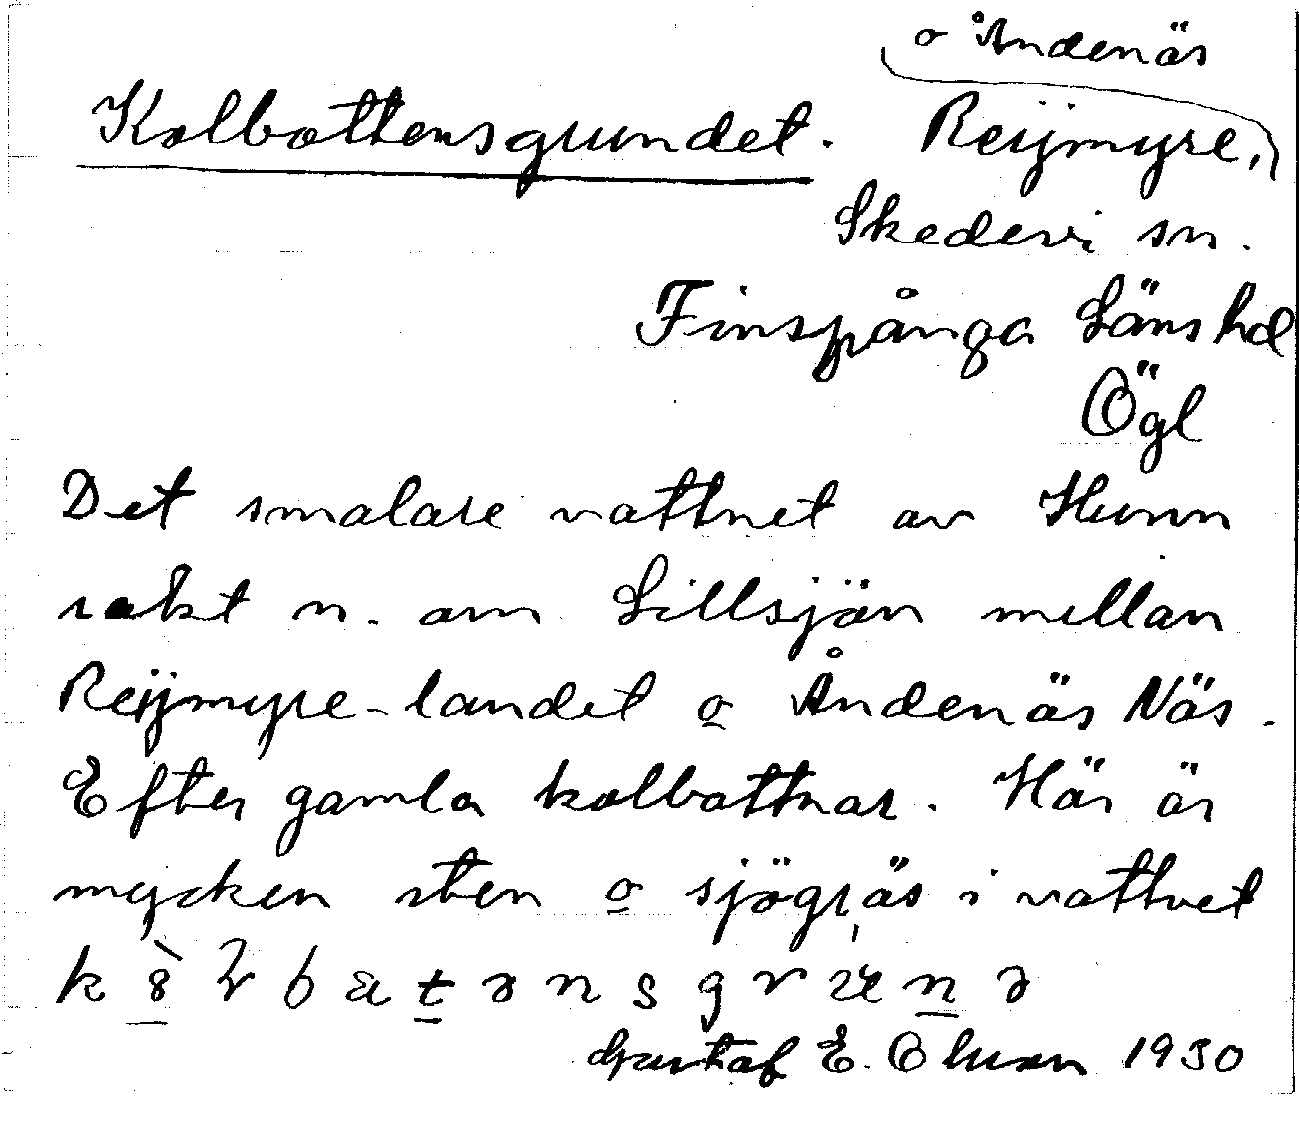 o Åndenäs
Kolbottensgrundet. Reijmyre,
Skedevi sn.
Finspånga Läns hd
Ögl
Det smalare vattnet av Hunn
rakt n. om Lillsjön mellan
Reijmyre-landet o Åndenäs Näs.
Efter gamla kolbottnar. Här är
mycken sten o sjögräs i vattnet
Gustaf E. Olsson 1930